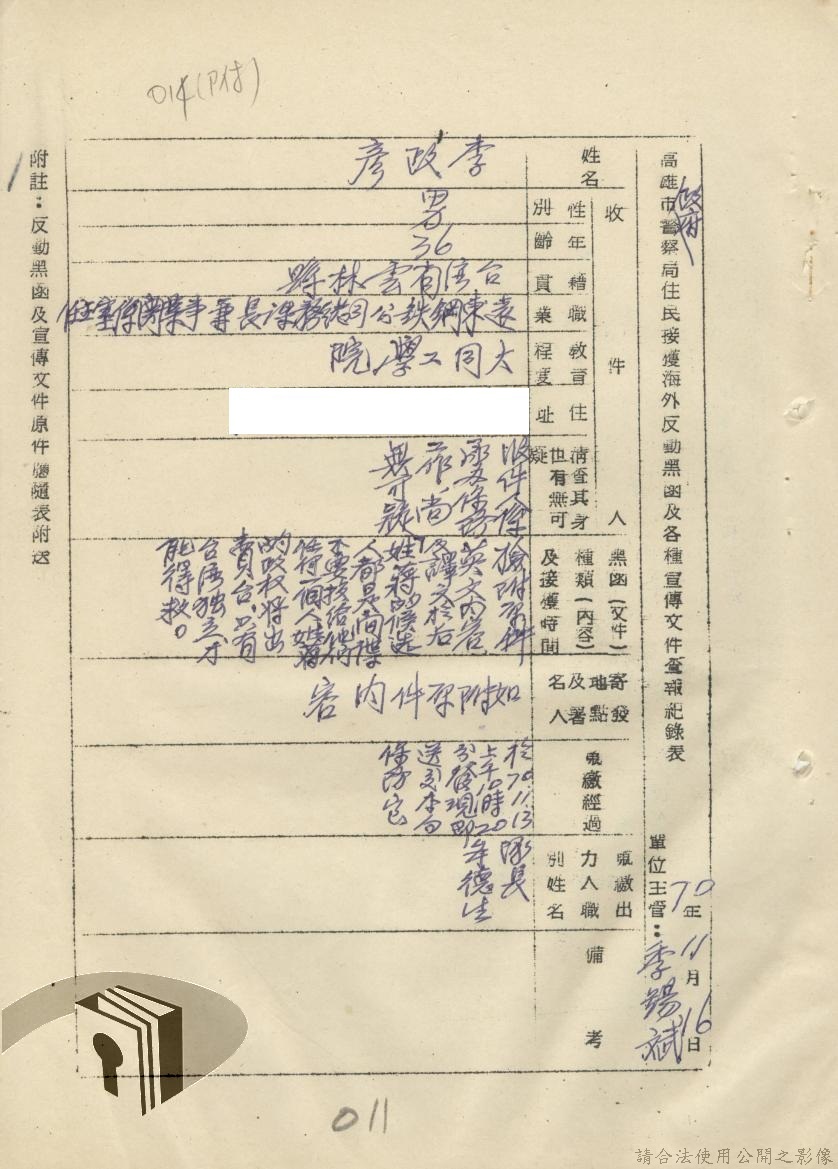 014(P付)
高雄市政府警察局住民接獲海外反動黑函及各種宣傳文件查報紀錄表
單位主管：季錫斌
70年11月16日
收件人
姓名
李政彥
性別
男
年齡
36
籍貫
台湾省雲林縣
職業
東鋼鉄公司總務課長兼事業関係室主任
教育程度
大同工學院
住址
清查其身也有無可疑
收件人係
尚
無可疑
黑函(文件)種類(內容)及接獲時間
檢附原件
英文內容
及譯文於右
姓蔣的候选
人都是間諜
不要投給他們
任何一個人姓蔣
的政权將出
賣台湾只有
台湾独立才
能得救。
寄發地點及署名人
如附原件內容
蒐繳經過
於70.11.13
上午10時20
分發現即
送交本局
保防室
蒐繳出力人職別姓名
隊長
牟德生
備考
附註：反動黑函及宣傳文件原件應隨表附送
011
請合法使用公開之影像